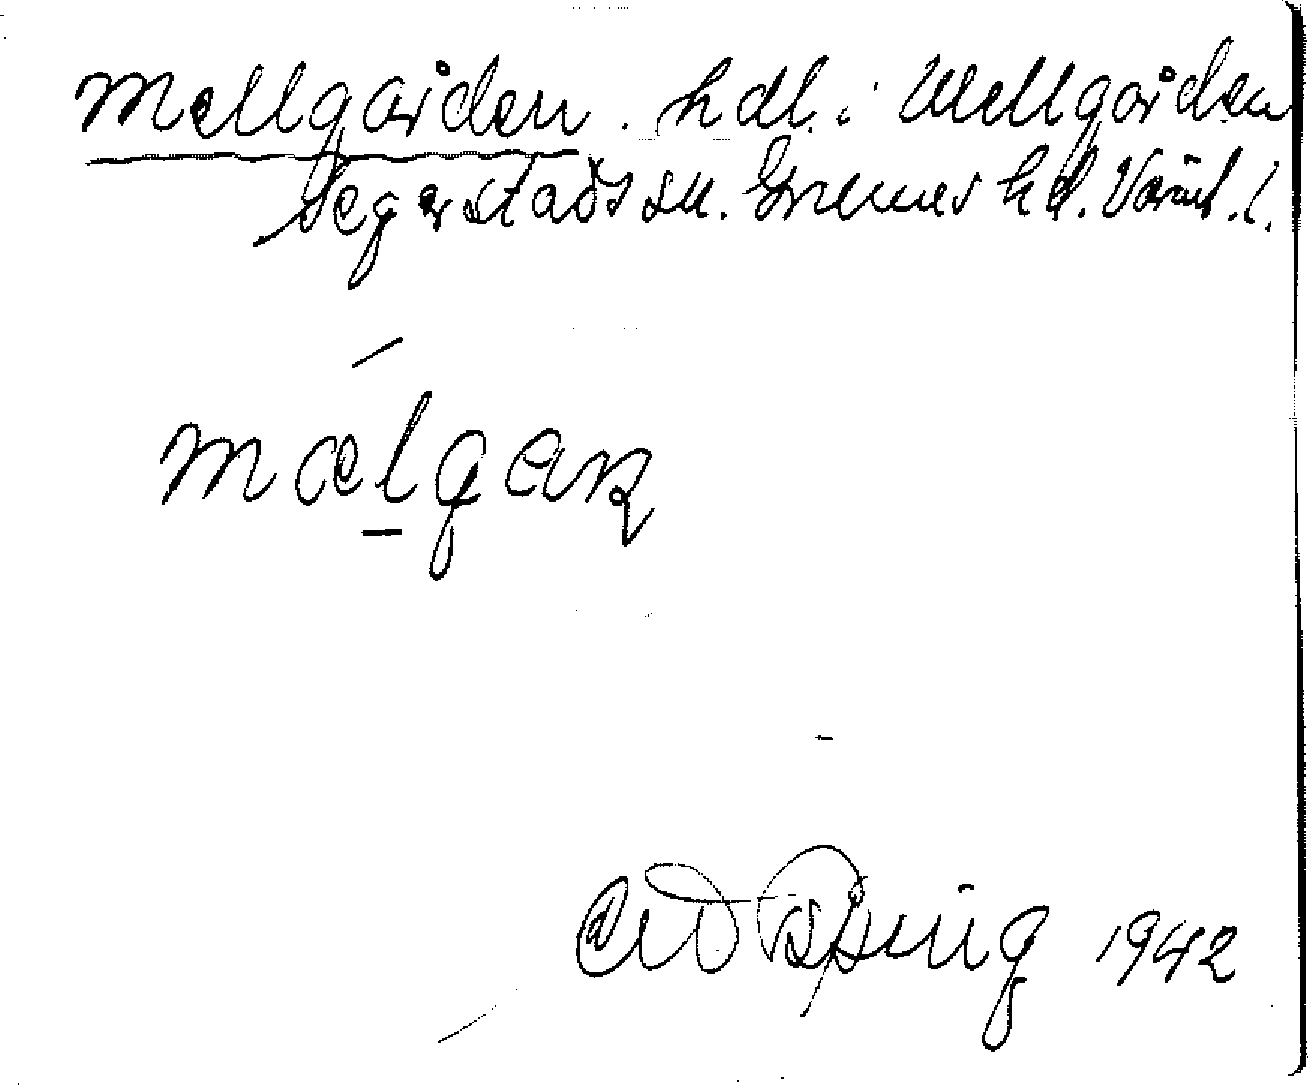 Mellgården. hdl. i Mellgården
Segerstads sn. Grums hd. Värml. l.
mælgaɳ
1942